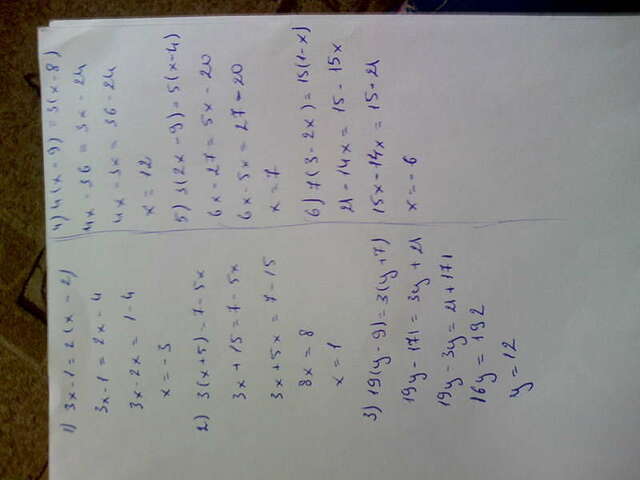 1) 3x-1=2(x-2)
3x-1=2x-4
3x-2x=1-4
x=-3
2) 3(x+5)=7-5x
3x+15=7-5x
3x+5x=7-15
8x=8
x=1
3) 19(y-9)=3(y+7)
19y-171=3y+21
19y-3y=21+171
16y=192
y=12
4) 4(x-9)=3(x-8)
4x-36=3x-24
4x-3x=36-24
x=12
5) 3(2x-9)=5(x-4)
6x-27=5x-20
6x-5x=27-20
x=7
6) 7(3-2x)=15(1-x)
21-14x=15-15x
15x-14x=15+21
x=-6